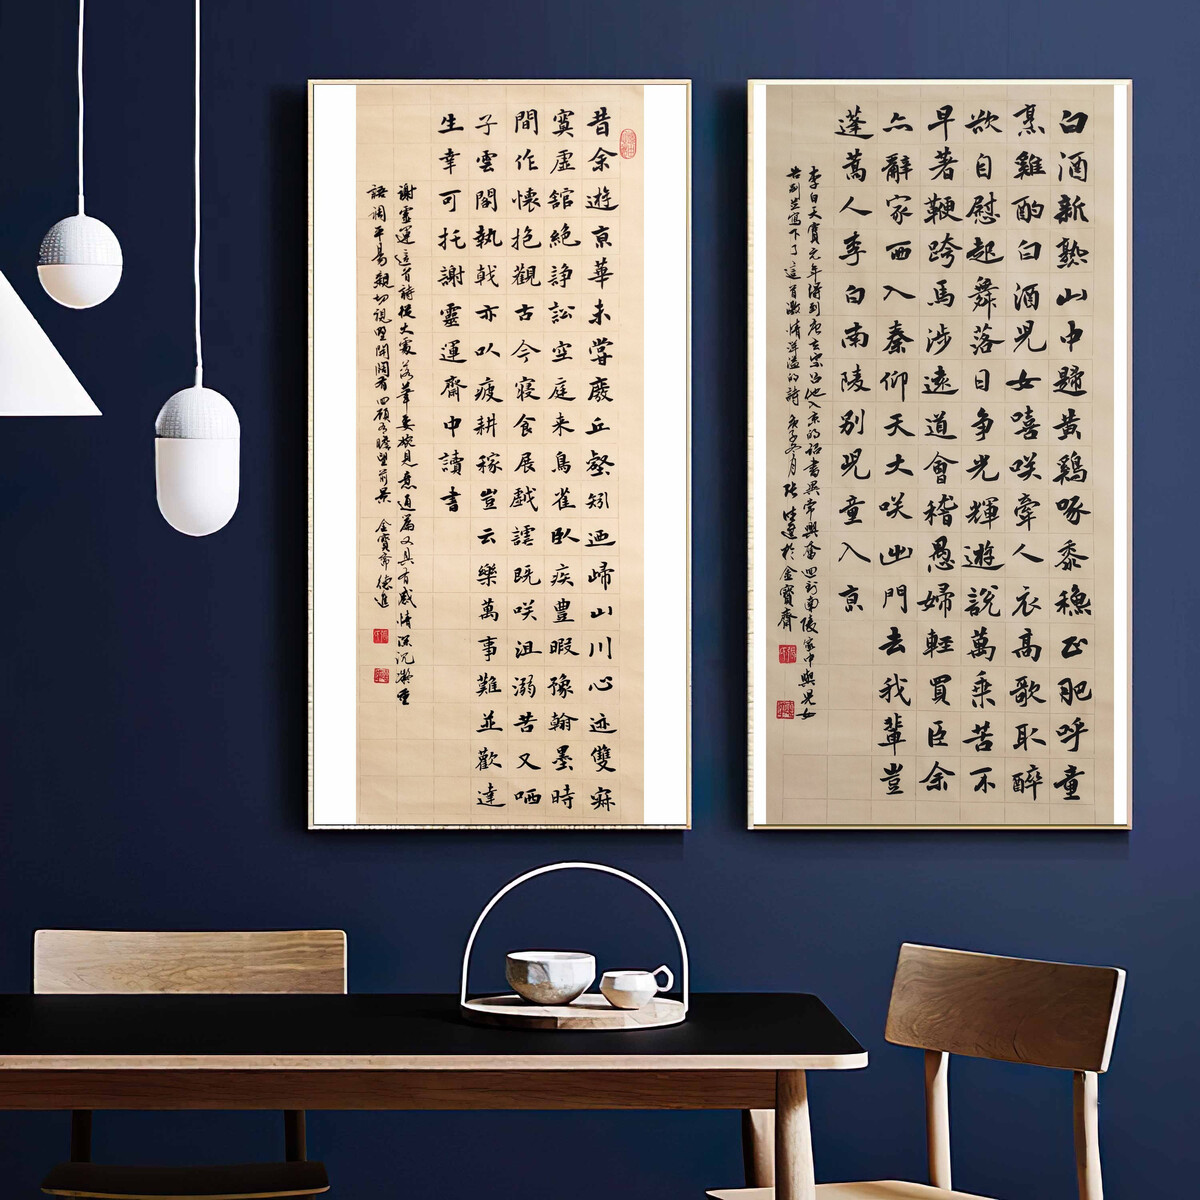 白酒新熟山中歸黃鷄啄黍穗正肥呼童
烹雞酌白酒兒女嘻咲牽人衣高歌取醉
欲自慰起舞落日爭光輝遊說萬乘苦不
早著鞭跨馬涉遠道會稽愚婦輕買臣余
亦辭家西入秦仰天大咲出門去我輩豈
蓬蒿人李白南陵別兒童入京
李白天寶元年得到唐玄宗召他入京的詔書異常興奮回到南陵家中與兒女
告別並寫下了這首激情洋溢的詩 庚子冬月 張德進於金寶齋
昔余遊京華未嘗廢丘壑矧迺歸山川心迹雙寂
寞虛舘絕諍訟空庭来鳥雀臥疾豊暇豫翰墨時
間作懷抱觀古今寢食展戲謔既咲沮溺苦又哂
子雲閣執戟亦以疲耕稼豈云樂萬事難並歡達
生幸可托謝靈運齋中讀書
謝靈運這首詩從大處落筆委婉見意通篇又具有感情深沉凝重
語調平易親切視野開闊有四顧瞻望前景 金寶齋 德進